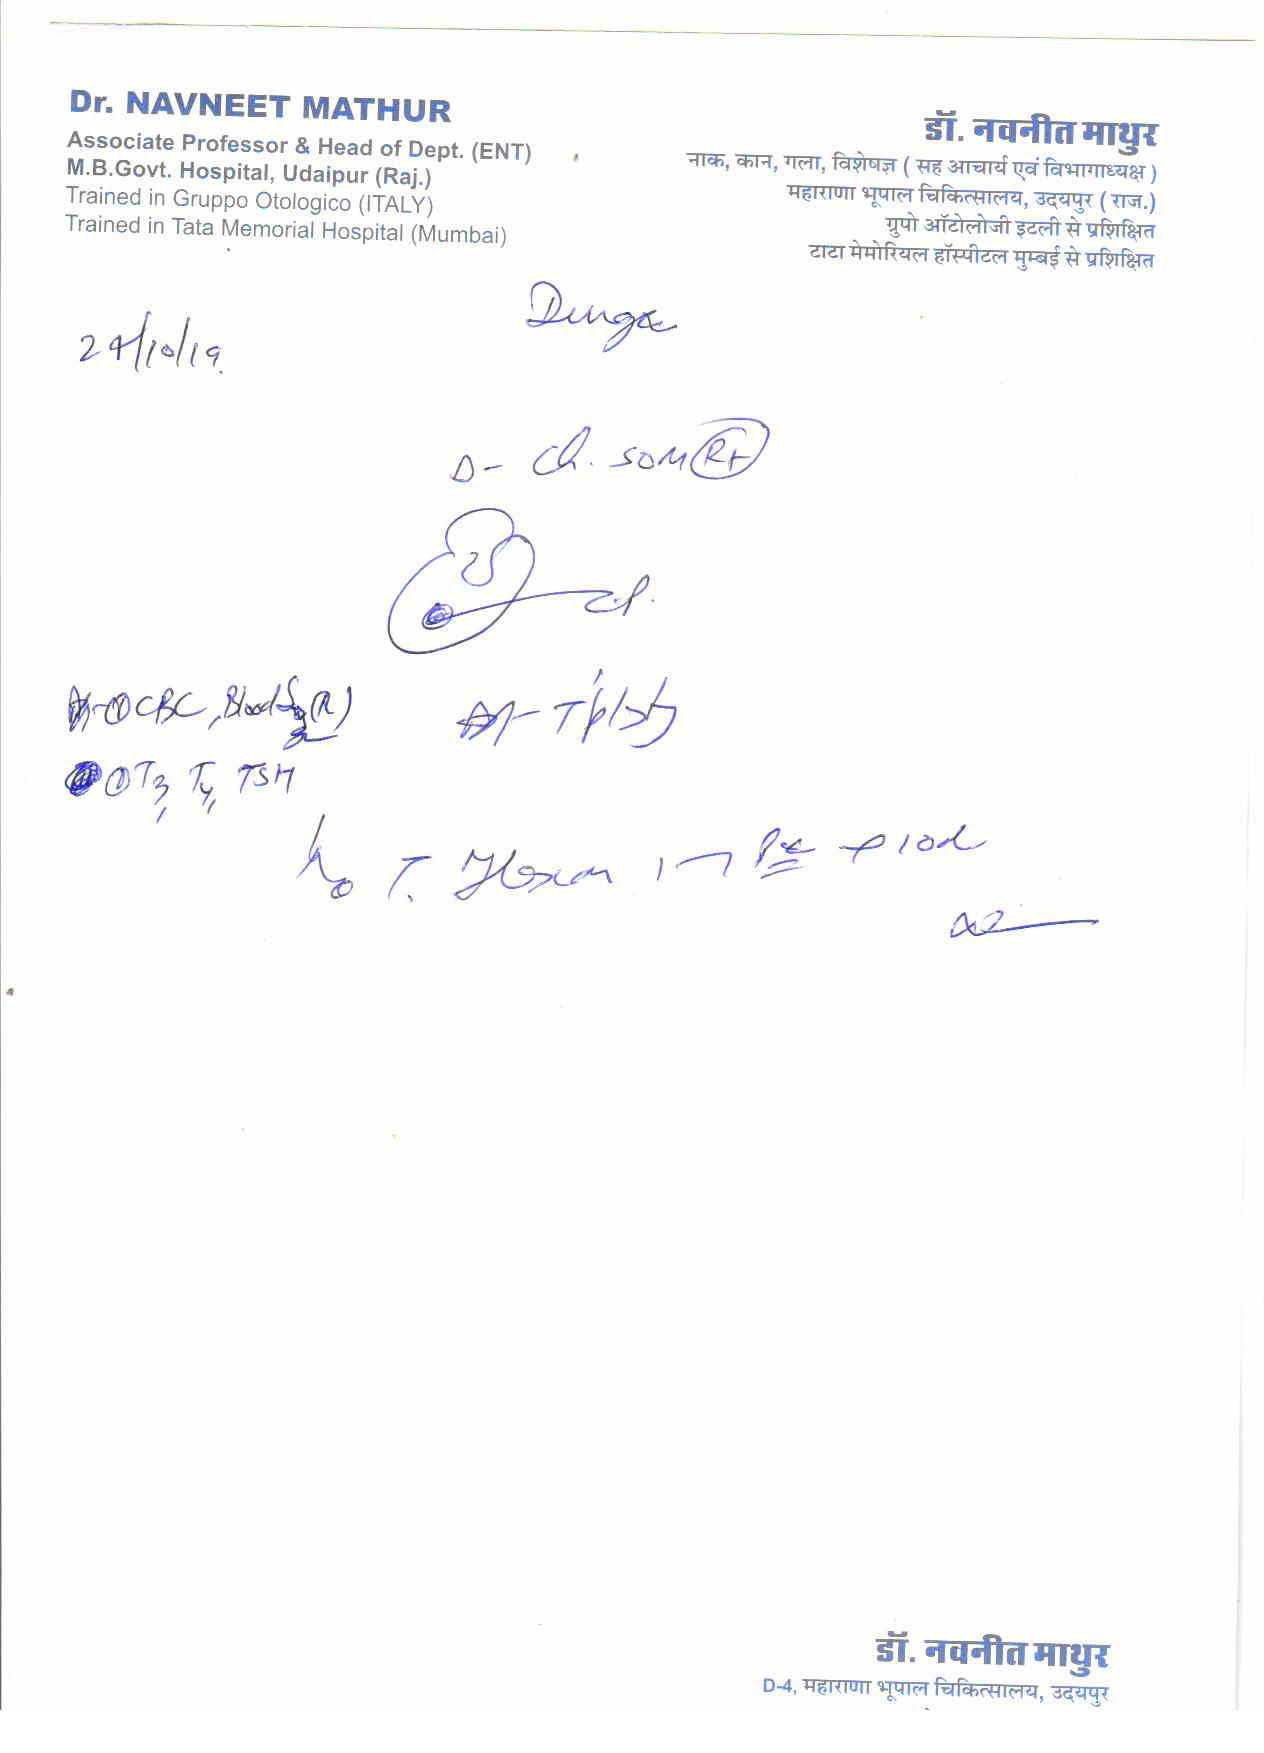 Dr. NAVNEET MATHUR
Associate Professor & Head of Dept. (ENT)
M.B.Govt. Hospital, Udaipur (Raj.)
Trained in Gruppo Otologico (ITALY)
Trained in Tata Memorial Hospital (Mumbai)
डॉ. नवनीत माथुर
नाक, कान, गला, विशेषज्ञ ( सह आचार्य एवं विभागाध्यक्ष )
महाराणा भूपाल चिकित्सालय, उदयपुर ( राज.)
ग्रुपो ऑटोलोजी इटली से प्रशिक्षित
टाटा मेमोरियल हॉस्पीटल मुम्बई से प्रशिक्षित
24/10/19
Δ- Ch. SOM Rt
CBC, Blood (R)
T3, T4, TSH
T. 10d
डॉ. नवनीत माथुर
D-4, महाराणा भूपाल चिकित्सालय, उदयपुर